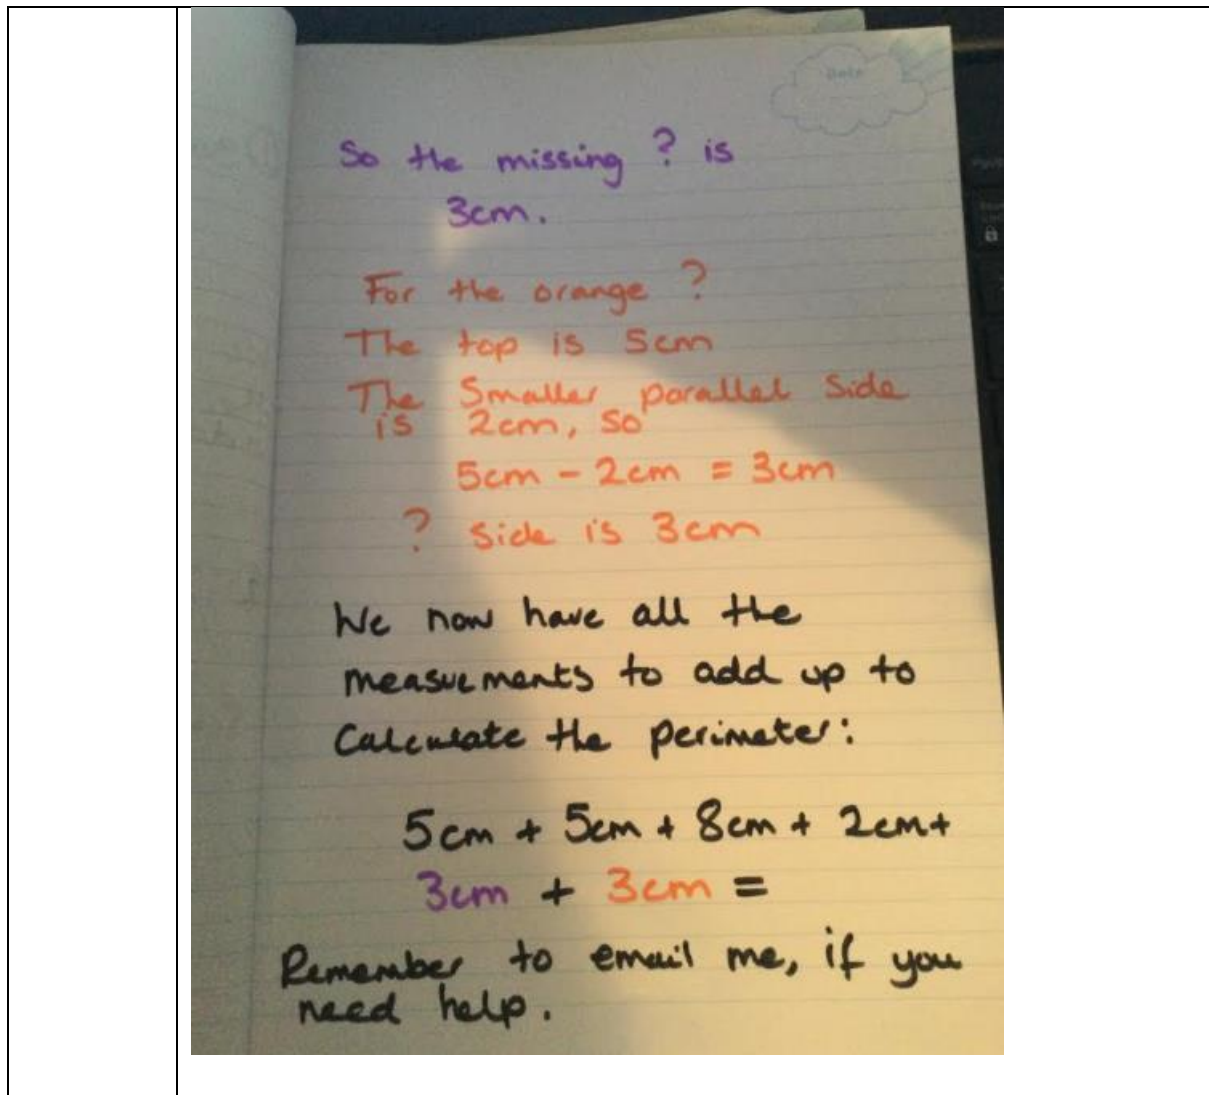 Date
So the missing ? is
3cm.
For the orange ?
The top is 5cm
The Smaller parallel Side
is 2cm, so
5cm - 2cm = 3cm
? Side is 3cm
We now have all the
measurements to add up to
Calculate the perimeter:
5cm + 5cm + 8cm + 2cm+
3cm + 3cm =
Remember to email me, if you
need help.